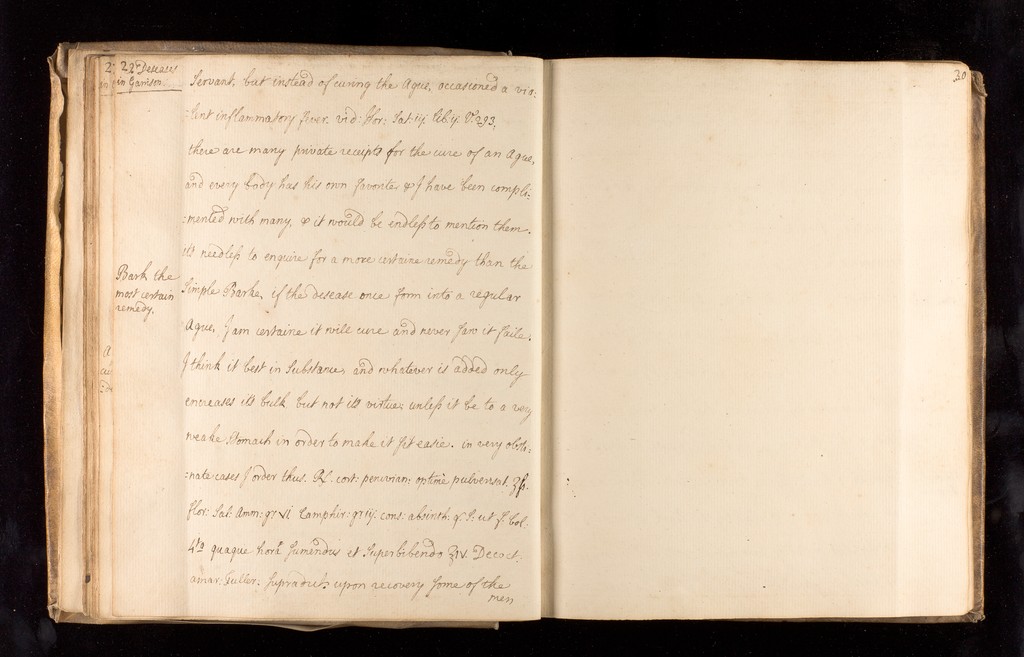 22 Deseases
in Garrison
30
Servant, but instead of curing the Ague, occasioned a vio:
:lent inflammatory fever. vid: Hor: Sat: Lib: V. 293.
there are many private receipts for the cure of an Ague,
and every body has his own favorite & I have been compli:
:mented with many, & it would be endless to mention them.
its needless to enquire for a more certaine remedy than the
Bark the
most certain
remedy.
Simple Barke, if the desease once form into a regular
Ague, I am certaine it will cure and never saw it faile.
I think it best in Substance, and whatever is added only
encreases its bulk but not its virtue; unless it be to a very
weake Stomach in order to make it sit easie. in very obsti:
:nate cases I order thus. Rx. cort: peruvian: optime pulverisat. ʒſs.
flor: Sal: Amm: gr vi Camphir: gr iij. cons: absinth: q. S. ut f. bol.
4ta quaque hora Sumendus et Superbibendo ʒiv. Decoct:
amar: Fuller: Supradict: upon recovery some of the
men